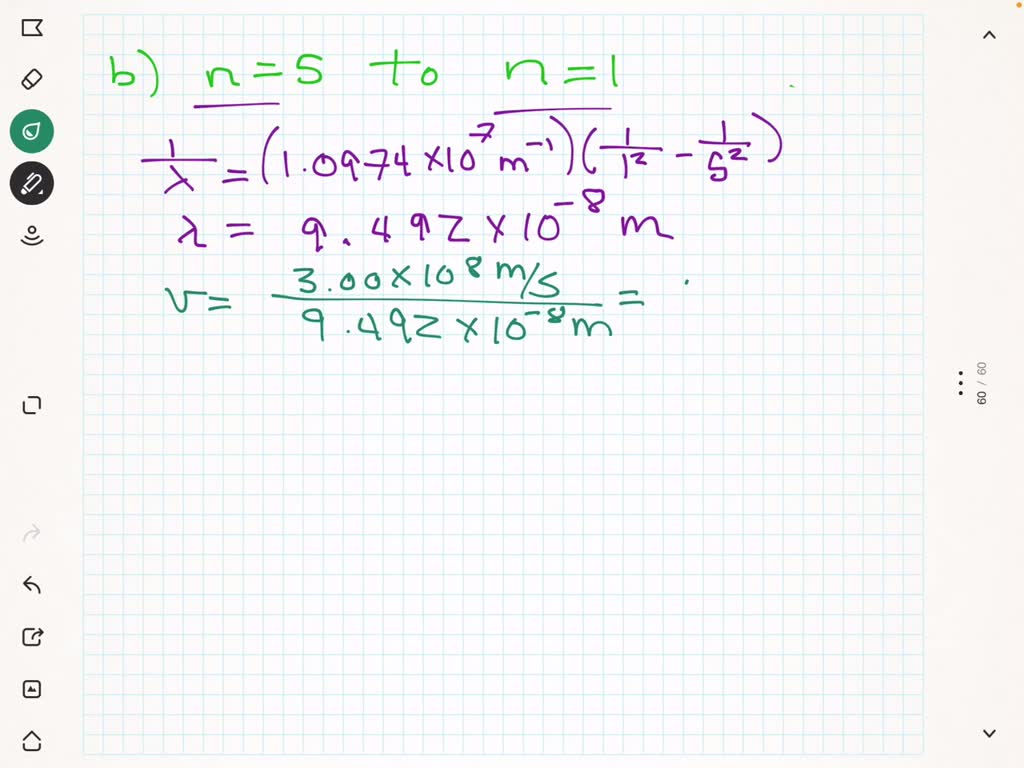 b) n = 5 to n = 1
1/λ = (1.0974 × 10⁷ m⁻¹)(1/1² − 1/5²)
λ = 9.492 × 10⁻⁸ m
ν = 3.00 × 10⁸ m/s / 9.492 × 10⁻⁸ m =
60 / 60